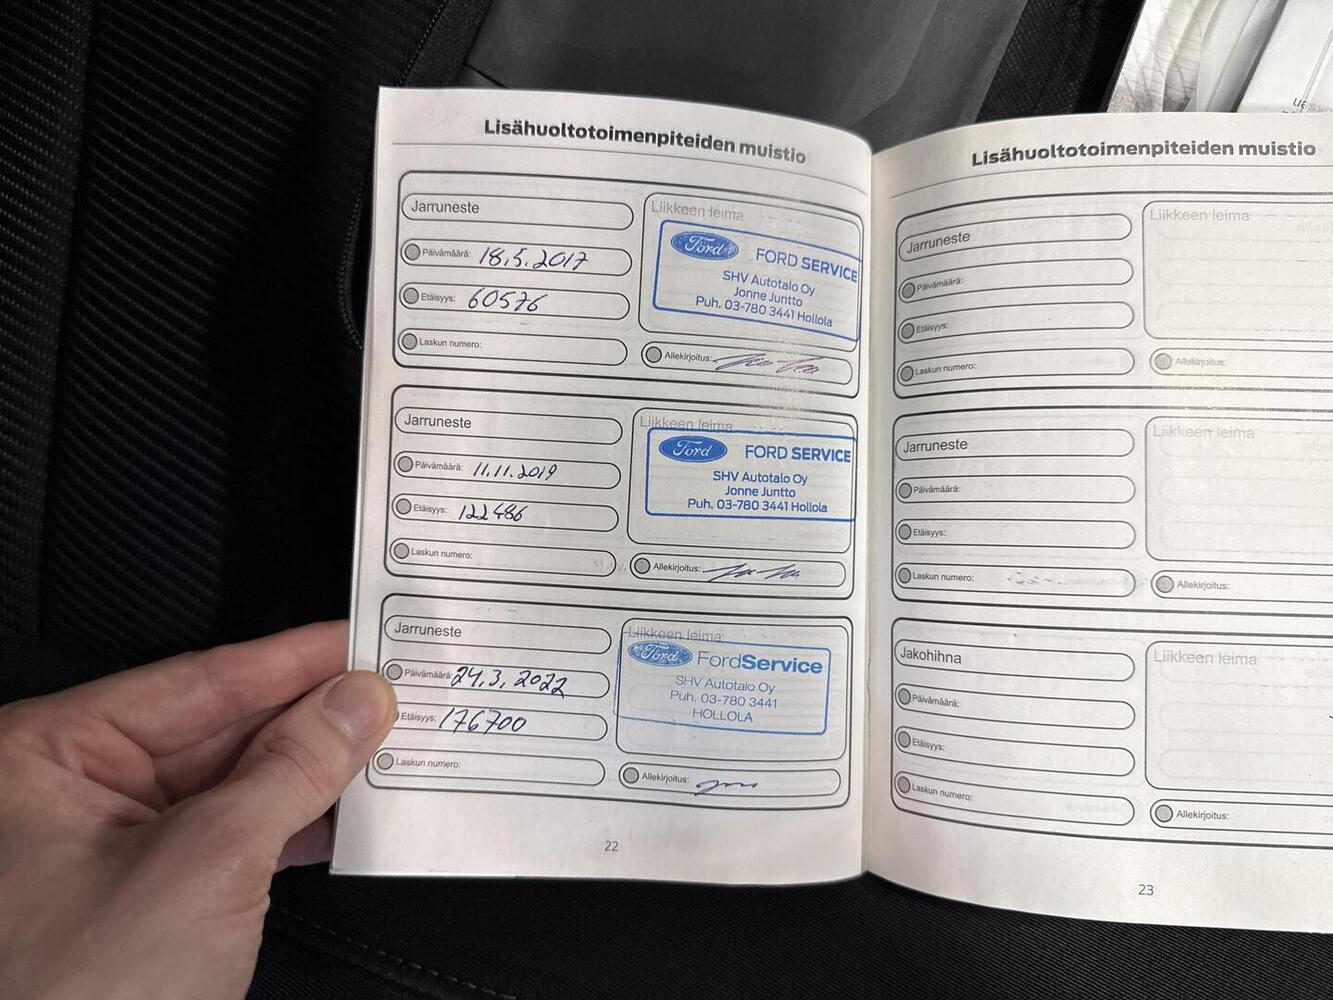 Lisähuoltotoimenpiteiden muistio
Jarruneste
Päivämäärä: 18.5.2017
Etäisyys: 60576
Laskun numero:
Liikkeen leima
Ford FORD SERVICE
SHV Autotalo Oy
Jonne Juntto
Puh. 03-780 3441 Hollola
Allekirjoitus:
Jarruneste
Päivämäärä: 11.11.2019
Etäisyys: 122486
Laskun numero:
Liikkeen leima
Ford FORD SERVICE
SHV Autotalo Oy
Jonne Juntto
Puh. 03-780 3441 Hollola
Allekirjoitus:
Jarruneste
Päivämäärä: 24.3.2022
Etäisyys: 176700
Laskun numero:
Liikkeen leima
Ford FordService
SHV Autotalo Oy
Puh. 03-780 3441
HOLLOLA
Allekirjoitus:
22
Lisähuoltotoimenpiteiden muistio
Jarruneste
Päivämäärä:
Etäisyys:
Laskun numero:
Liikkeen leima
Allekirjoitus:
Jarruneste
Päivämäärä:
Etäisyys:
Laskun numero:
Liikkeen leima
Allekirjoitus:
Jakohihna
Päivämäärä:
Etäisyys:
Laskun numero:
Liikkeen leima
Allekirjoitus:
23